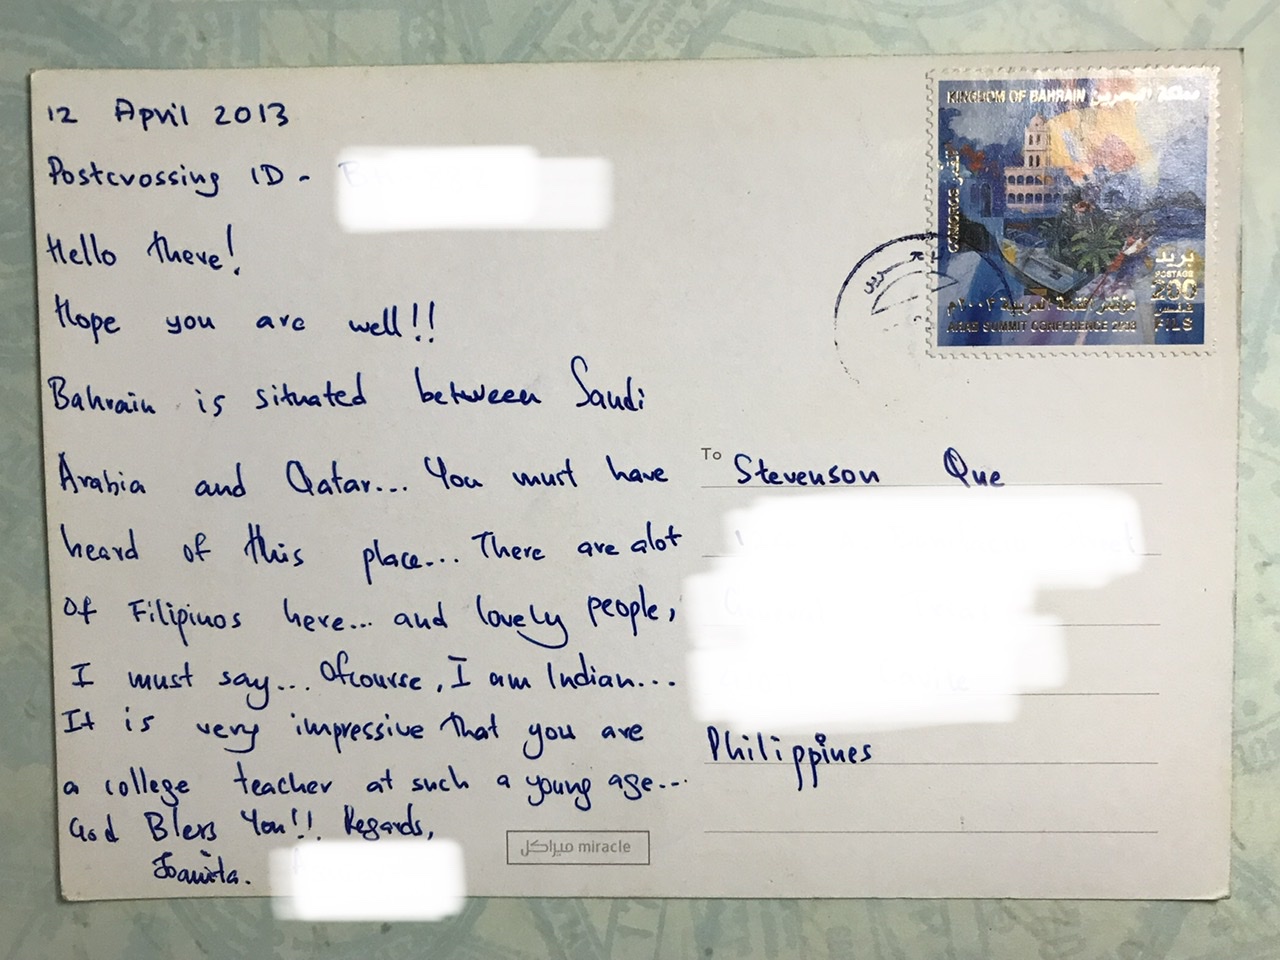 12 April 2013
Postcrossing ID -
Hello there!
Hope you are well!!
Bahrain is situated between Saudi
Arabia and Qatar... You must have
heard of this place... There are alot
of Filipinos here... and lovely people,
I must say... Ofcourse, I am Indian...
It is very impressive that you are
a college teacher at such a young age...
God Bless You!! Regards,
KINGDOM OF BAHRAIN مملكة البحرين
COMOROS القمر
بريد
POSTAGE
200
فلس
FILS
مؤتمر القمة العربية ٢٠٠٣م
ARAB SUMMIT CONFERENCE 2003
To Stevenson Que
Philippines
ميراكل miracle